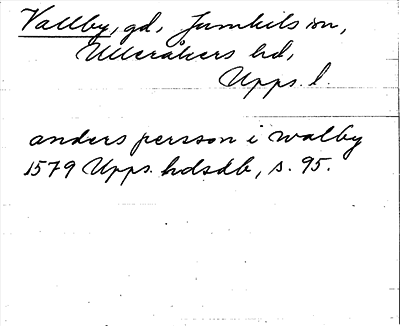 Vallby, gd, Jumkils sn,
Ulleråkers hd,
Upps. l.
anders persson i walby
1579 Upps. hdsdb, s. 95.